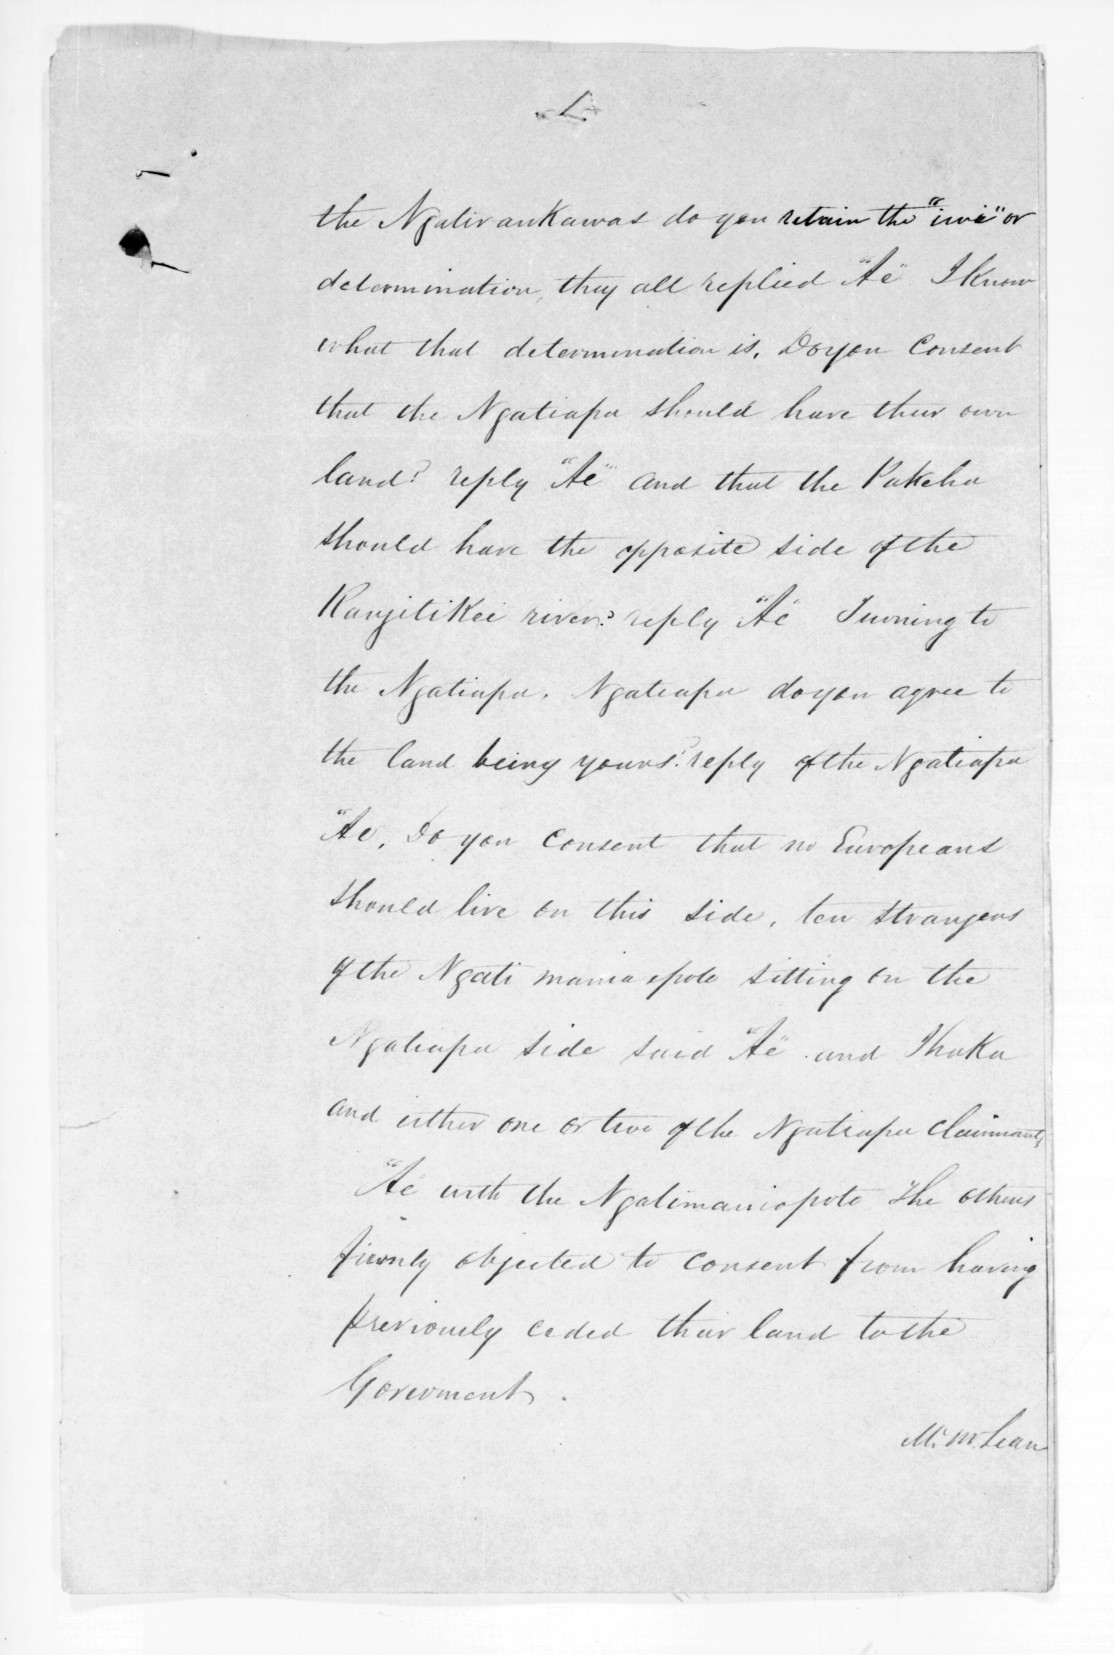 the Ngatiraukawas do you retain the "iwi" or
determination, they all replied "Ae" I Know
what that determination is. Do you Consent
that the Ngatiapa should have their own
land? reply "Ae" and that the Pakeha
should have the opposite side of the
Rangitikei river? reply "Ae" Turning to
the Ngatiapa. Ngatiapa do you agree to
the land being yours? reply of the Ngatiapa
"Ae. Do you Consent that no Europeans
should live on this side, ten strangers
of the Ngati maniapoto sitting on the
Ngatiapa side said "Ae" and Ihaka
and either one or two of the Ngatiapa Claimants
"Ae" with the Ngatimaniopoto The others
firmly objected to consent from having
previously ceded their land to the
Goverment.
Mr. McLean